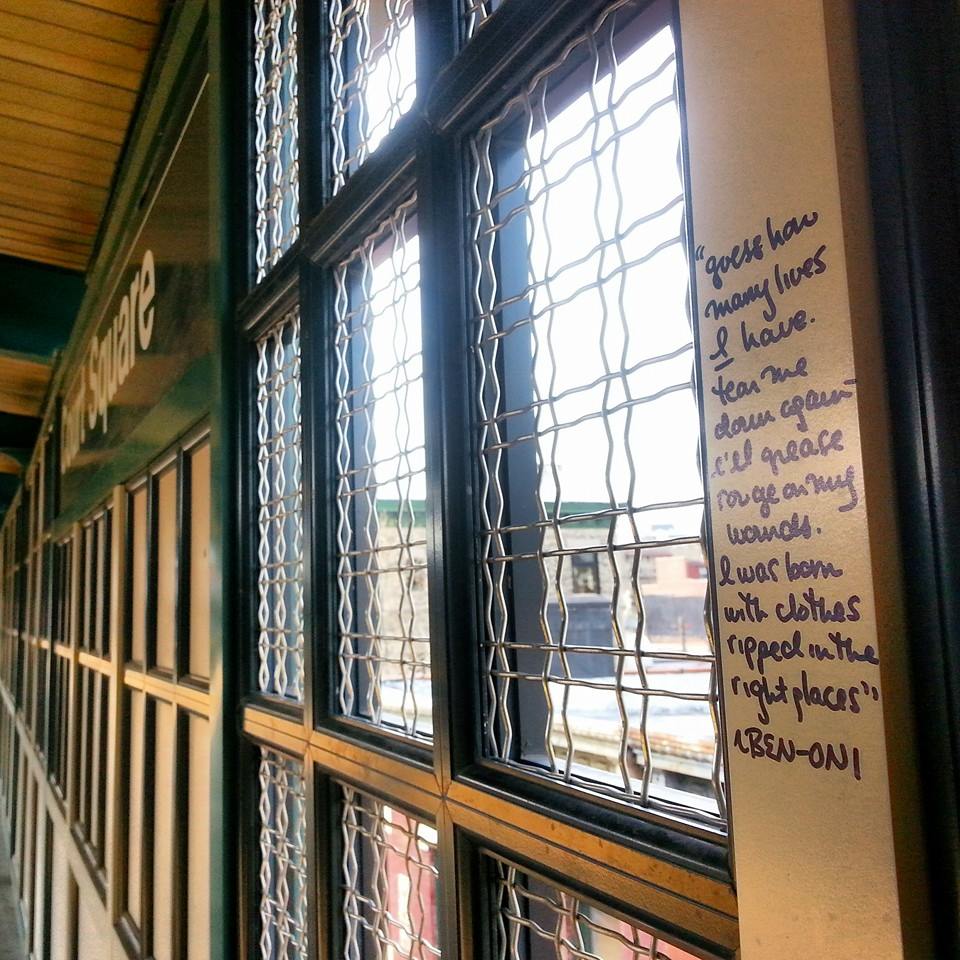 Square
"guess how
many lives
I have.
tear me
down again
i'll grease
rouge on my
wounds.
I was born
with clothes
ripped in the
right places"
~BEN-ONI